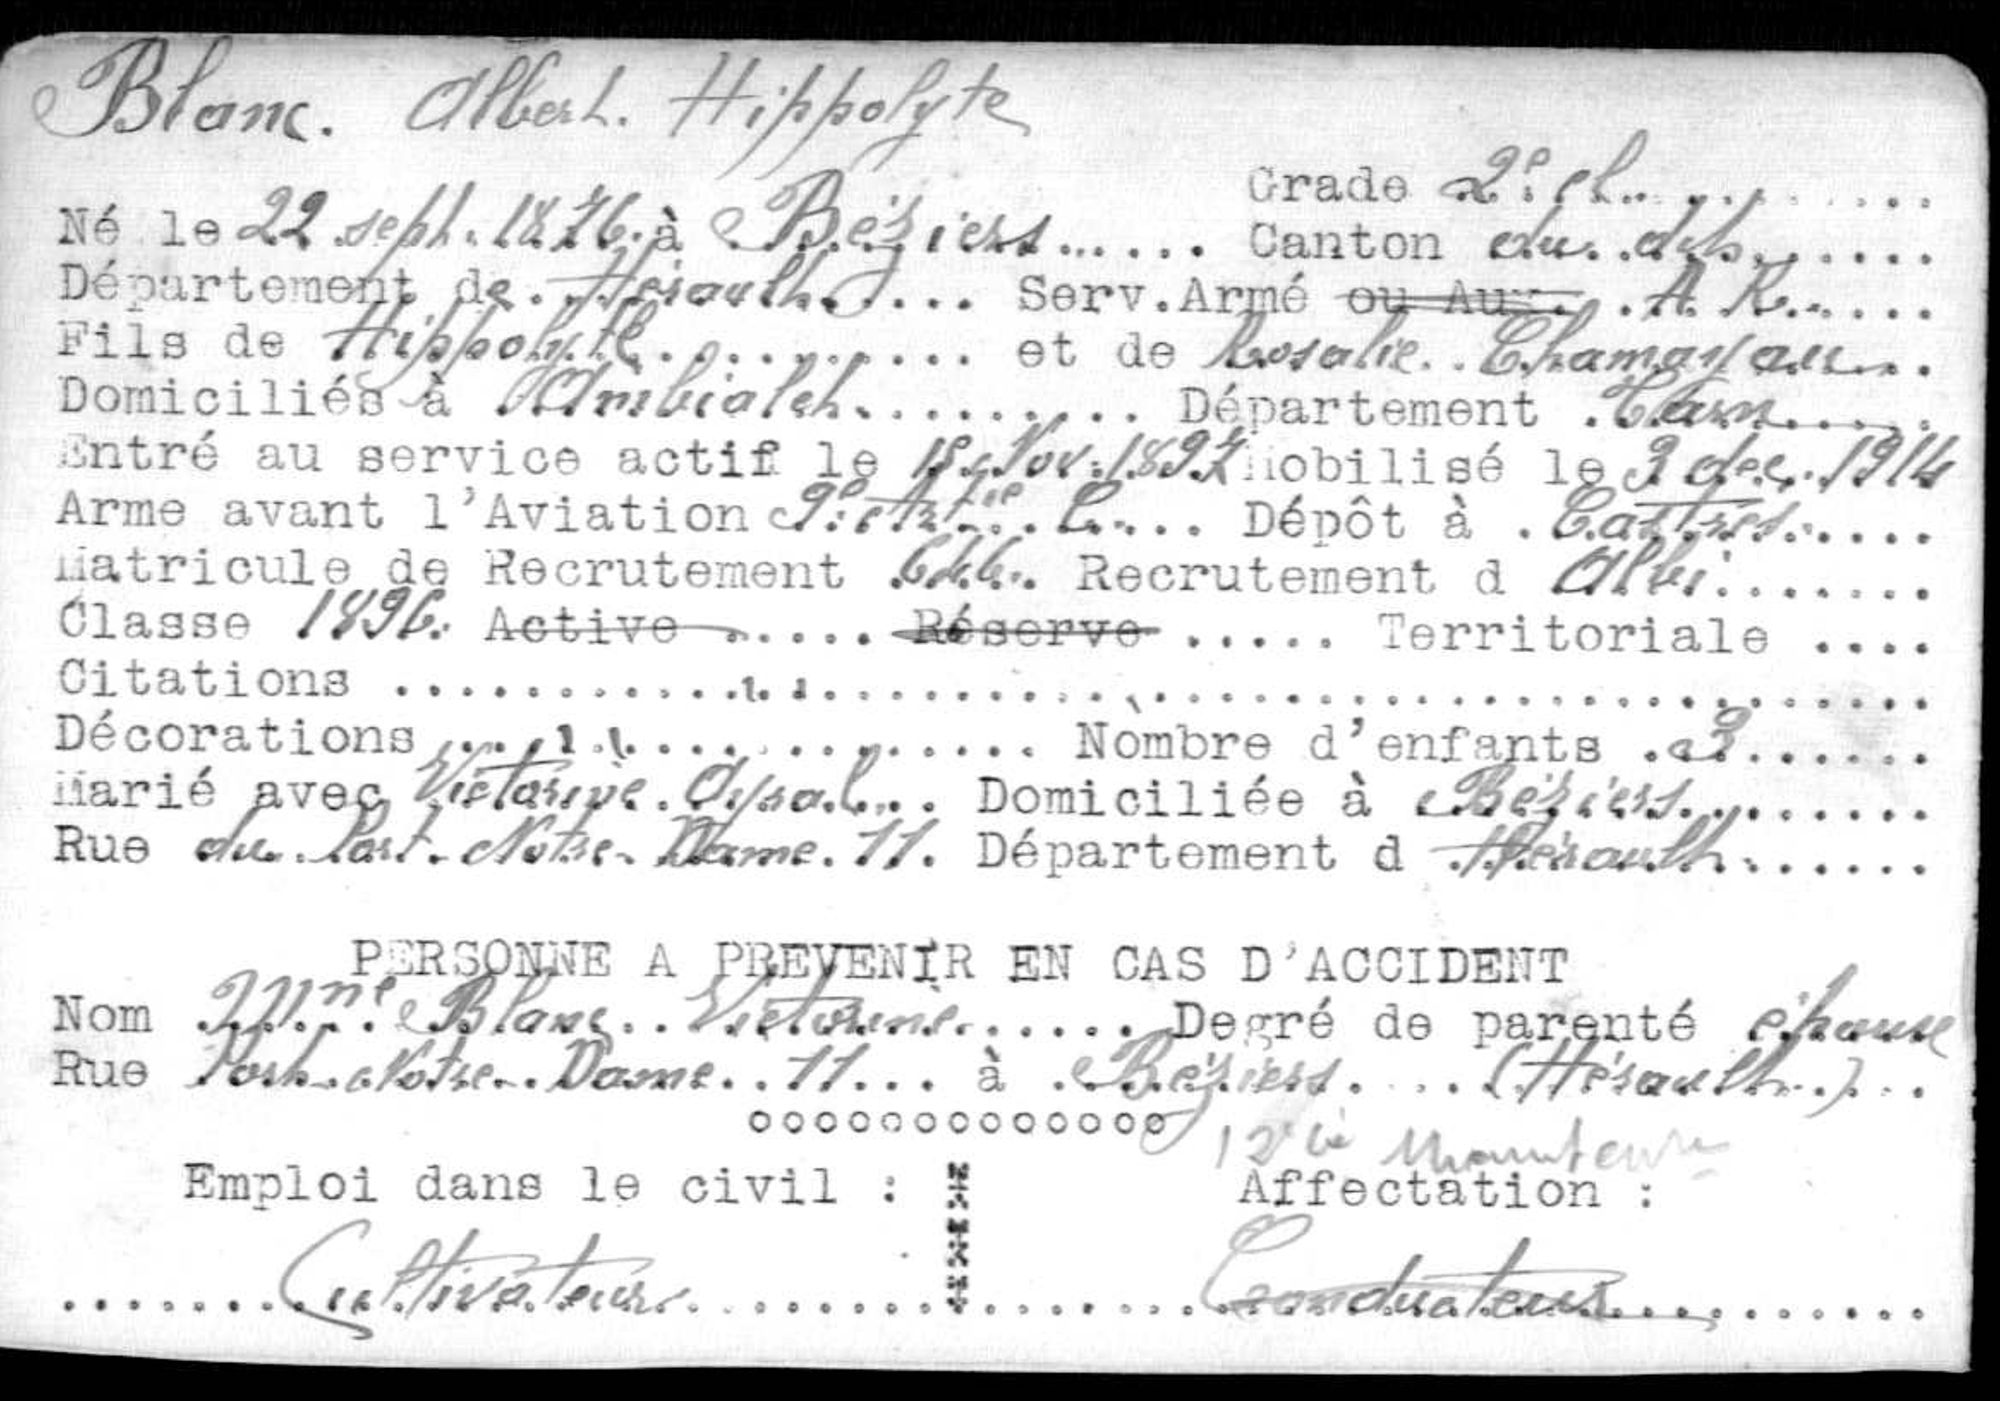 Blanc. Albert. Hippolyte
Grade 2e cl.
Né le 22 sept. 1876. à Béziers...... Canton du dit......
Département de Hérault.... Serv. Armé ou Aux. A. R.....
Fils de Hippolyte.......... et de Rosalie Chamayou...
Domiciliés à Ambialet......... Département Tarn.....
Entré au service actif le 15 Nov. 1897 Mobilisé le 3 dec. 1914
Arme avant l'Aviation 9e Artie C.... Dépôt à Castres.....
Matricule de Recrutement Recrutement d Albi.......
Classe 1896. Active ..... Réserve ..... Territoriale ....
Citations ........................................
Décorations ................ Nombre d'enfants 3......
Marié avec Victorine Domiciliée à Béziers.......
Rue du Port. Notre-Dame. 11. Département d Hérault......
PERSONNE A PREVENIR EN CAS D'ACCIDENT
Nom Mme Blanc Victorine..... Degré de parenté épouse
Rue Port Notre Dame 11... à Béziers.... (Hérault)...
ooooooooooooo
Emploi dans le civil : Affectation :
Cultivateur Conducteur